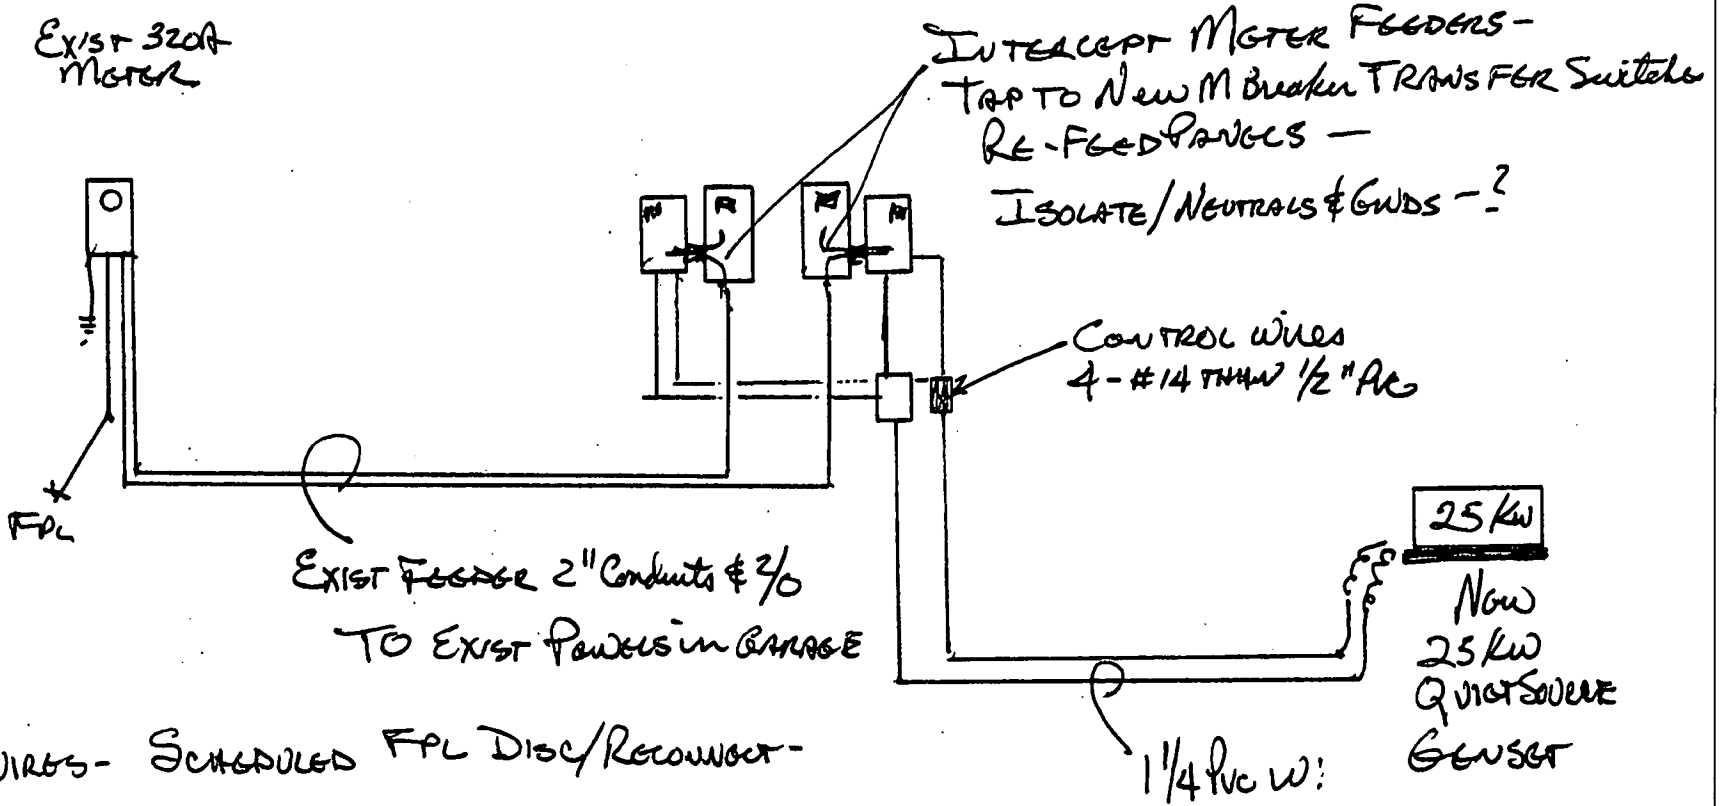 EXIST 320A
METER
INTERCEPT METER FEEDERS -
TAP TO New M Breaker TRANSFER Switches
RE-FEED PANELS —
ISOLATE/NEUTRALS & GNDS - ?
CONTROL WIRES
4 - #14 THHN 1/2" PVC
FPL
EXIST FEEDER 2" Conduits & 2/0
TO EXIST PANELS in GARAGE
25 KW
New
25 KW
QUIET SOURCE
GENSET
1 1/4 PVC W:
SCHEDULED FPL DISC/RECONNECT -